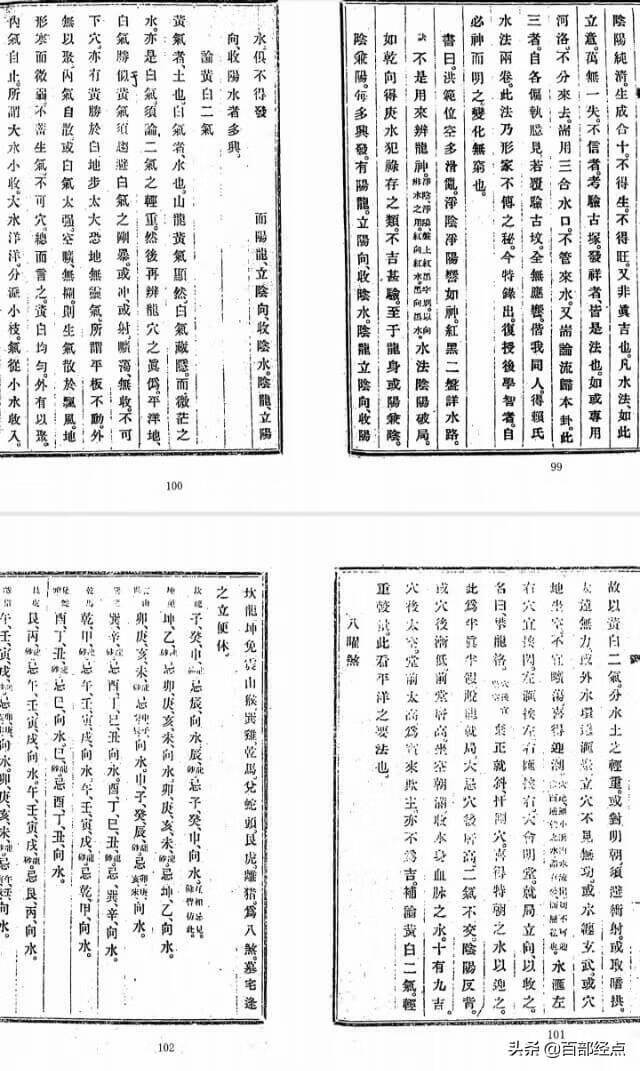 陰陽純清生成合十。不得生。不得旺。又非眞吉也。凡水法如此
立意。萬無一失。不信者。考驗古塚。發祥者。皆是法也。如或專用
河洛。不分來去。耑用三合水口。不管來水。又耑論流歸本卦。此
三者。自各偏執臆見。若覆驗古坟。全無應響。偕我同人。得賴氏
水法兩卷。此法乃形家不傳之秘。今特錄出。復授後學智者。自
必神而明之。變化無窮也。
書曰。洪範位空多滑亂。淨陰淨陽響如神。紅黑二盤詳水路。
訣不是用來辨龍神。淨陰淨陽。盤上紅黑字別。以向辨水之用。紅向紅水黑向黑水。水法陰陽破局。
如乾向得庚水犯祿存之類。不吉甚驗。至于龍身或陽兼陰。
陰兼陽。每多興發。有陽龍。立陽向。收陰水。陰龍立陰向。收陽
99
水。俱不得發 而陽龍。立陰向。收陰水。陰龍立陽
向。收陽水者多興。
論黃白二氣
黃氣者。土也。白氣者。水也。山龍黃氣顯然。白氣藏隱。而微茫之
水。亦是白氣。須論二氣之輕重。然後再辨龍穴之眞僞。平洋地。
白氣勝似黃氣。須趨避白氣之剛暴。或冲。或射。曠蕩。無收。不可
下穴。亦有黃勝於白。地步太大。恐地無靈氣。所謂平板不動。外
無以聚。內氣自散。或白氣太强。空曠無攔。則生氣散於飄風。地
形寒而微弱。不蓄生氣。不可穴。總而言之。黃白均勻。外有以聚。
內氣自止。所謂大水小收。大水洋洋。分派小枝。氣從小水收入。
100
故以黃白二氣。分水土之輕重。或對明朝。須避衝射。或取暗拱。
太遠無力。或外水環遶灣抱。立穴不見無功。或水纏玄武。或穴
地坐空。不宜曠蕩。喜得迎潮 水滙左
右穴宜挨閃。左灣挨左。右灣挨右。穴會明堂。就局立向。以收之。
名曰聚龍格。棄正就斜。扦側穴。喜得特朝之水以迎之。
此爲半眞半假脫龍就局。大忌穴後唇高。二氣不交。陰陽反背。
或穴後漸低。前堂唇高。坐空朝滿。收水身血脉之水。十有九吉。
穴後太空。堂前太高。爲賓來欺主。亦不爲吉。補論黃白二氣。輕
重較量。此看平洋之要法也。
八曜煞
101
坎龍坤兔震山猴。巽雞乾馬。兌蛇頭。艮虎。離猪。爲八煞。墓宅逢
之立便休。
坎龍 子。癸。申。忌辰。向水。辰龍砂忌子。癸。申。向水。
坤兔 坤。乙。忌卯。庚。亥。未。向水。卯。庚。亥。未龍砂忌坤。乙。向水。
卯。庚。亥。未龍砂忌申向水。申。子。癸。辰龍砂忌卯庚亥未。向水。
巽。辛龍砂忌酉。丁。巳。丑。向水。酉。丁。巳。丑龍砂忌巽。辛。向水。
乾馬 乾。甲龍砂忌午。壬。寅。戌。向水。午。壬。寅。戌龍砂忌乾。甲。向水。
兌蛇 酉。丁。丑龍砂忌巳。向水。巳龍砂忌酉。丁。丑。向水。
艮虎 艮。丙龍砂忌午。壬。寅。戌。向水。午。壬。寅。戌龍砂忌艮。丙。向水。
午。壬。寅。戌龍砂忌卯庚亥未向水。卯。庚。亥。未龍砂忌午壬寅戌。向水。
102
头条 @百部经点